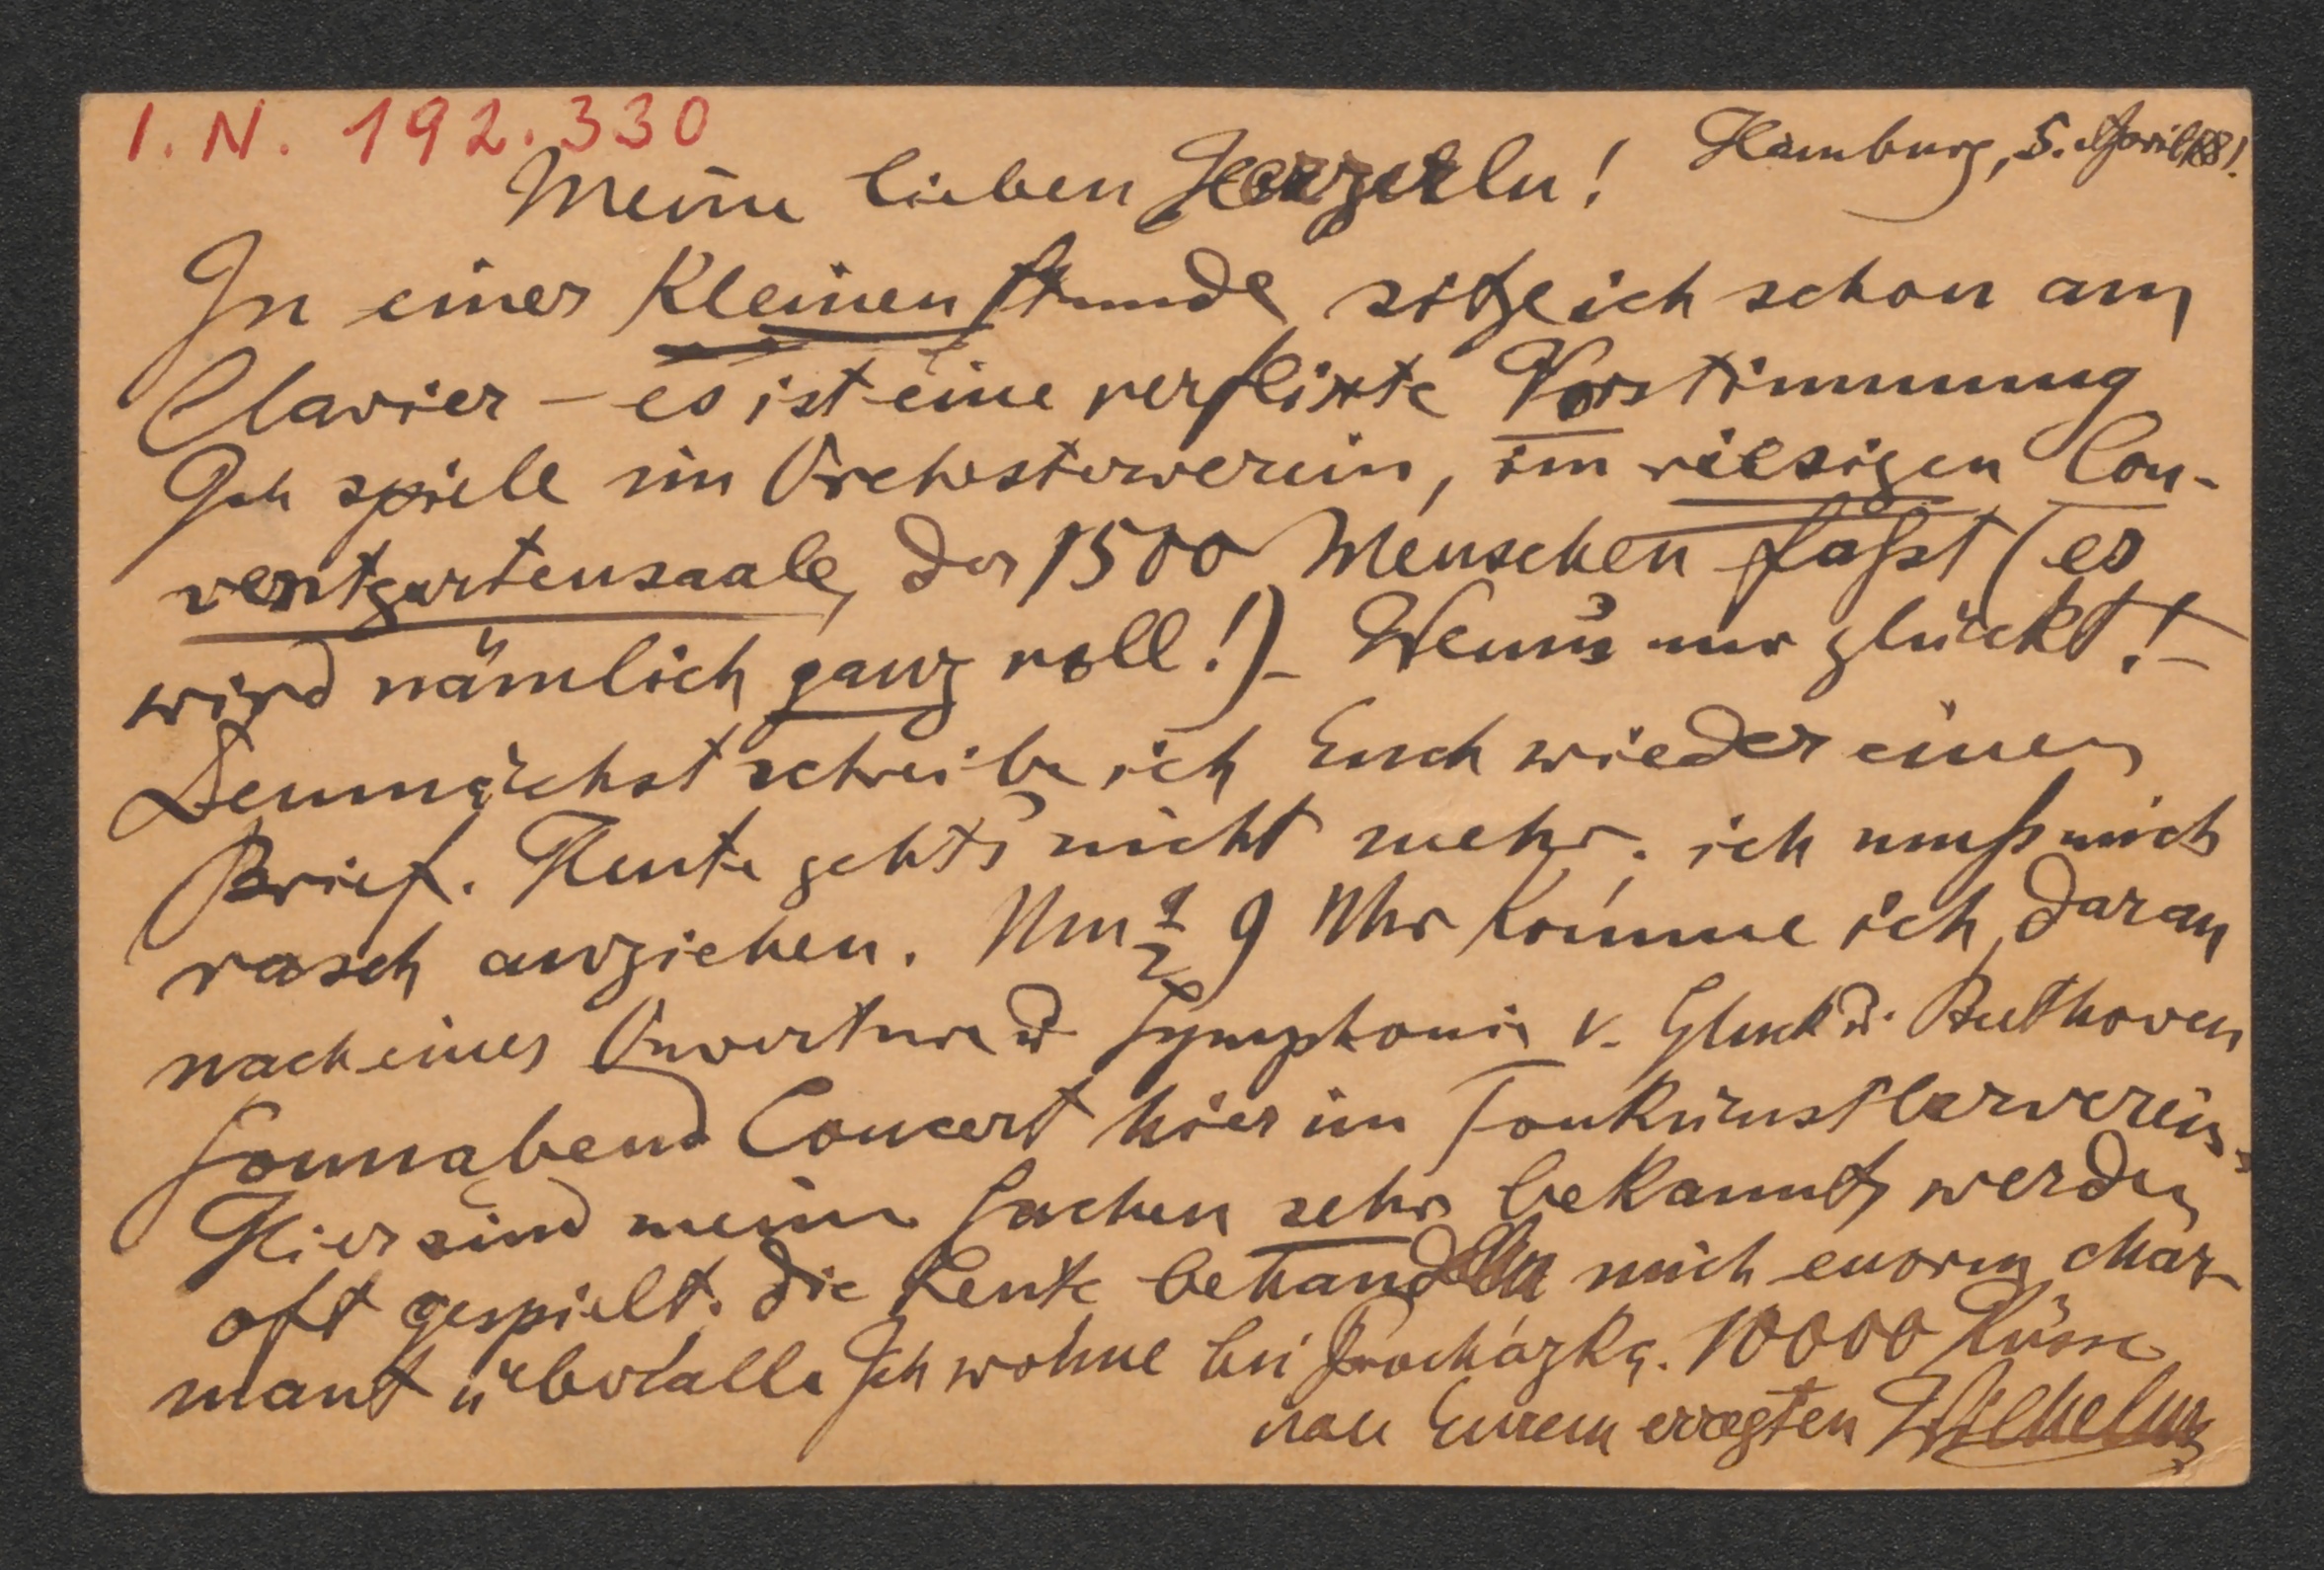 I. N. 192.330
Hamburg, 5. April 88!
Meine lieben Herzerln!
In einer kleinen Stunde sitze ich schon am
Clavier – es ist eine verflixte Vorstimmung
Ich spiele im Orchesterverein, im riesigen Con-
ventgartensaale, der 1500 Menschen faßt (es
wird nämlich ganz voll!) – Wenn's nur glückt! –
Demnächst schreibe ich Euch wieder einen
Brief. Heute geht's nicht mehr; ich muß mich
rasch anziehen. Um ½ 9 Uhr komme ich daran
nach einer Ouverture u. Symphonie v. Gluck u. Beethoven
Sonnabend Concert hier im Tonkünstlerverein.
Hier sind meine Sachen sehr bekannt, werden
oft gespielt. Die Leute behandeln mich enorm char-
mant überall. Ich wohne bei Procházka. 10000 Küsse
von Eurem erregten Wilhelm